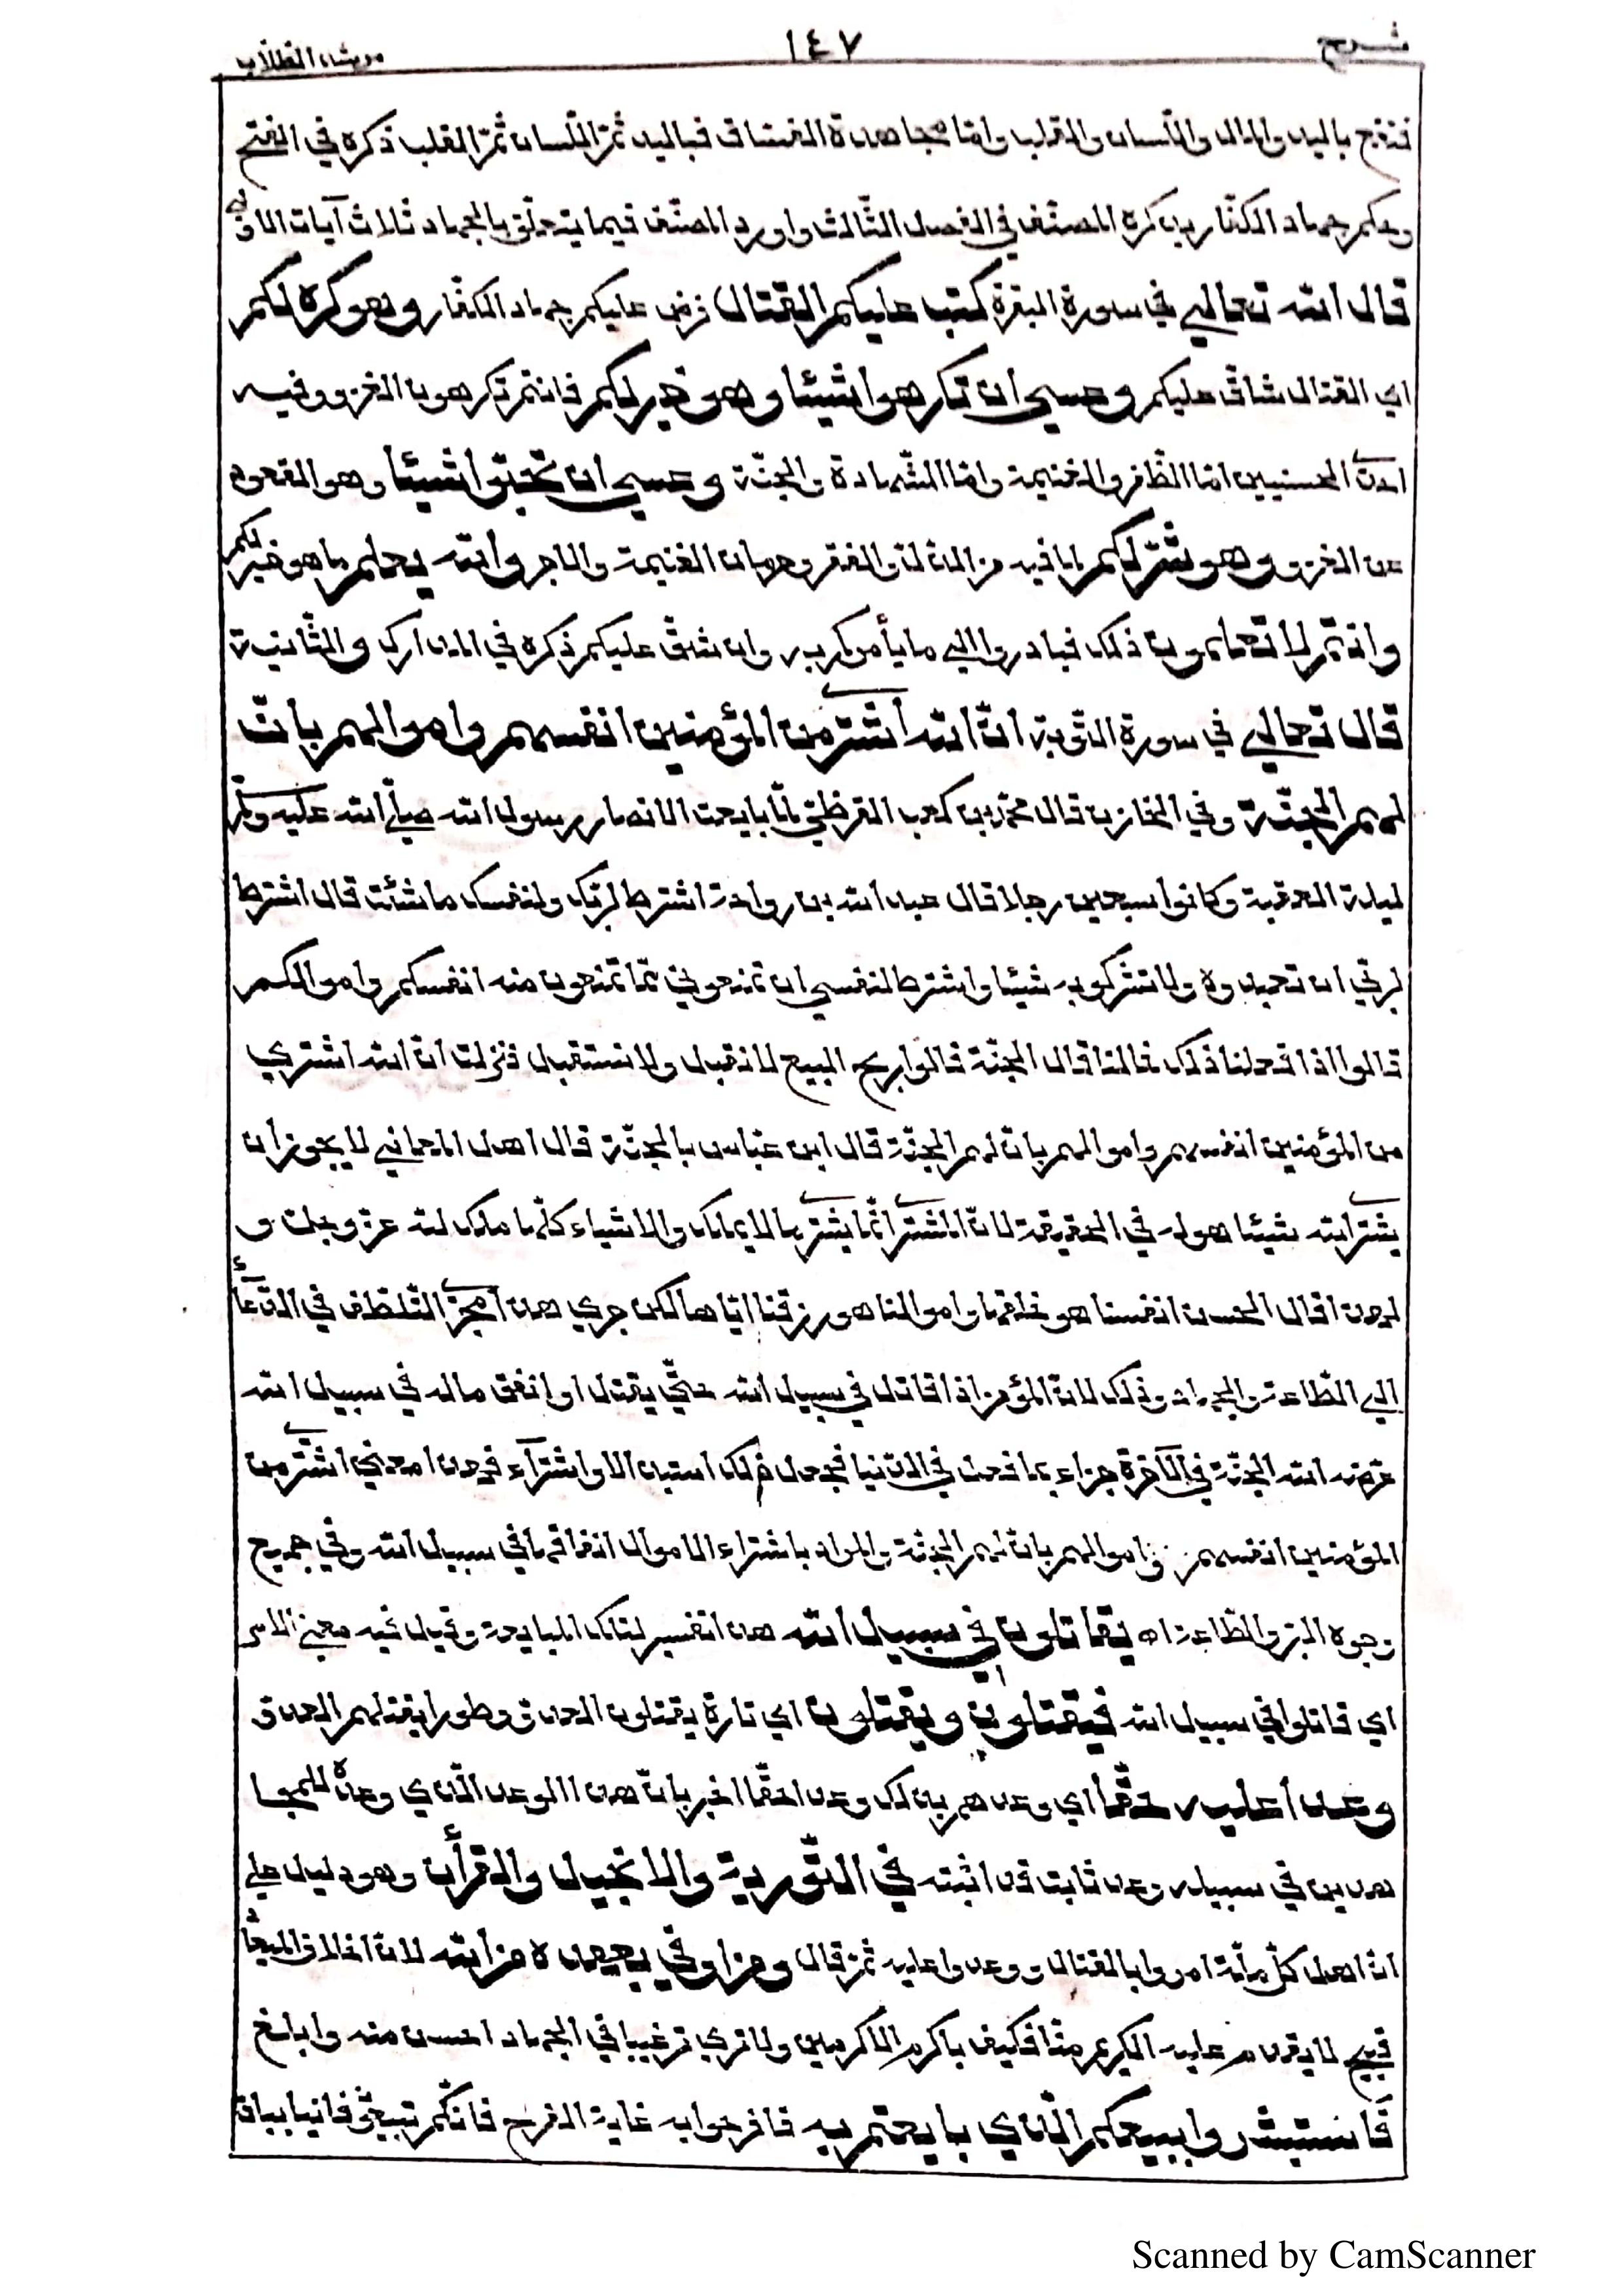 شرح ١٤٧ مرشد الطلّاب
فتقع باليد والمال واللّسان والقلب وامّا مجاهدة الفسّاق فباليد ثمّ اللّسان ثمّ القلب ذكره في الفتح
وحكم جهاد الكفّار يذكره المصنّف في الفصل الثّالث واورد المصنّف فيما يتعلّق بالجهاد ثلاث آيات الاولى
قال الله تعالي في سورة البقرة كتب عليكم القتال فرض عليكم جهاد الكفّار وهو كره لكم
اي القتال شاقّ عليكم وعسي ان تكرهوا شيئا وهو خير لكم فانتم تكرهون الغزو وفيه
احدى الحسنيين امّا الظّفر والغنيمة وامّا الشّهادة والجنّة وعسي ان تحبّوا شيئا وهو القعود
عن الغزو وهو شرّ لكم لما فيه من الذلّ والفقر وحرمان الغنيمة والاجر والله يعلم ما هو خير لكم
وانتم لا تعلمون ذلك فبادروا الي ما يأمركم به وان شقّ عليكم ذكره في المدارك والثّانية
قال تعالي في سورة التّوبة انّ الله أشترى من المؤمنين انفسهم واموالهم بانّ
لهم الجنّة وفي الخازن قال محمّد بن كعب القرظيّ لمّا بايعت الانصار رسول الله صلّي الله عليه وسلّم
ليلة العقبة وكانوا سبعين رجلا قال عبد الله بن رواحة اشترط لربّك ولنفسك ما شئت قال اشترط
لربّي ان تعبدوه ولا تشركوا به شيئا واشترط لنفسي ان تمنعوني ممّا تمنعون منه انفسكم واموالكم
قالوا اذا فعلنا ذلك فما لنا قال الجنّة قالوا ربح البيع لا نقيل ولا نستقيل فنزلت انّ الله اشتري
من المؤمنين انفسهم واموالهم بانّ لهم الجنّة قال ابن عبّاس بالجنّة قال اهل المعاني لا يجوز أن
يشترى الله شيئا هو له في الحقيقة لانّ المشترى انّما يشترى ما لا يملك والاشياء كلّها ملك لله عزّ وجلّ و
لهذا قال الحسن انفسنا هو خلقها واموالنا هو رزقنا ايّاها لكن جري هذا مجرى التّلطّف في الدّعاء
الي الطّاعة والجهاد وذلك لانّ المؤمن اذا قاتل في سبيل الله حتّي يقتل او انفق ماله في سبيل الله
عوّضه الله الجنّة في الآخرة جزاء بما فعل في الدّنيا فجعل ذلك استبدالا واشتراء فهذا معني اشترى من
المؤمنين انفسهم واموالهم بانّ لهم الجنّة والمراد باشتراء الاموال انفاقها في سبيل الله وفي جميع
وجوه البرّ والطّاعة اه يقاتلون في سبيل الله هذا تفسير لتلك المبايعة وقيل فيه معني الامر
اي قاتلوا في سبيل الله فيقتلون ويقتلون اي تارة يقتلون العدوّ وطورا يقتلهم العدوّ
وعدا عليه حقّا أي وعدهم بذلك وعدا حقّا اخبر بانّ هذا الوعد الّذي وعده للمجا
هدين في سبيله وعد ثابت قد اثبته في التّورية والانجيل والقرأن وهو دليل علي
انّ اهل كلّ ملّة امروا بالقتال ووعدوا عليه ثمّ قال ومن اوفي بعهده من الله لانّ اخلاف الميعاد
قبيح لا يقدم عليه الكريم منّا فكيف باكرم الاكرمين ولا تري ترغيبا في الجهاد احسن منه وابلغ
فاستبشروا ببيعكم الّذي بايعتم به فافرحوا به غاية الفرح فانّكم تبيعون فانيا بباق
Scanned by CamScanner